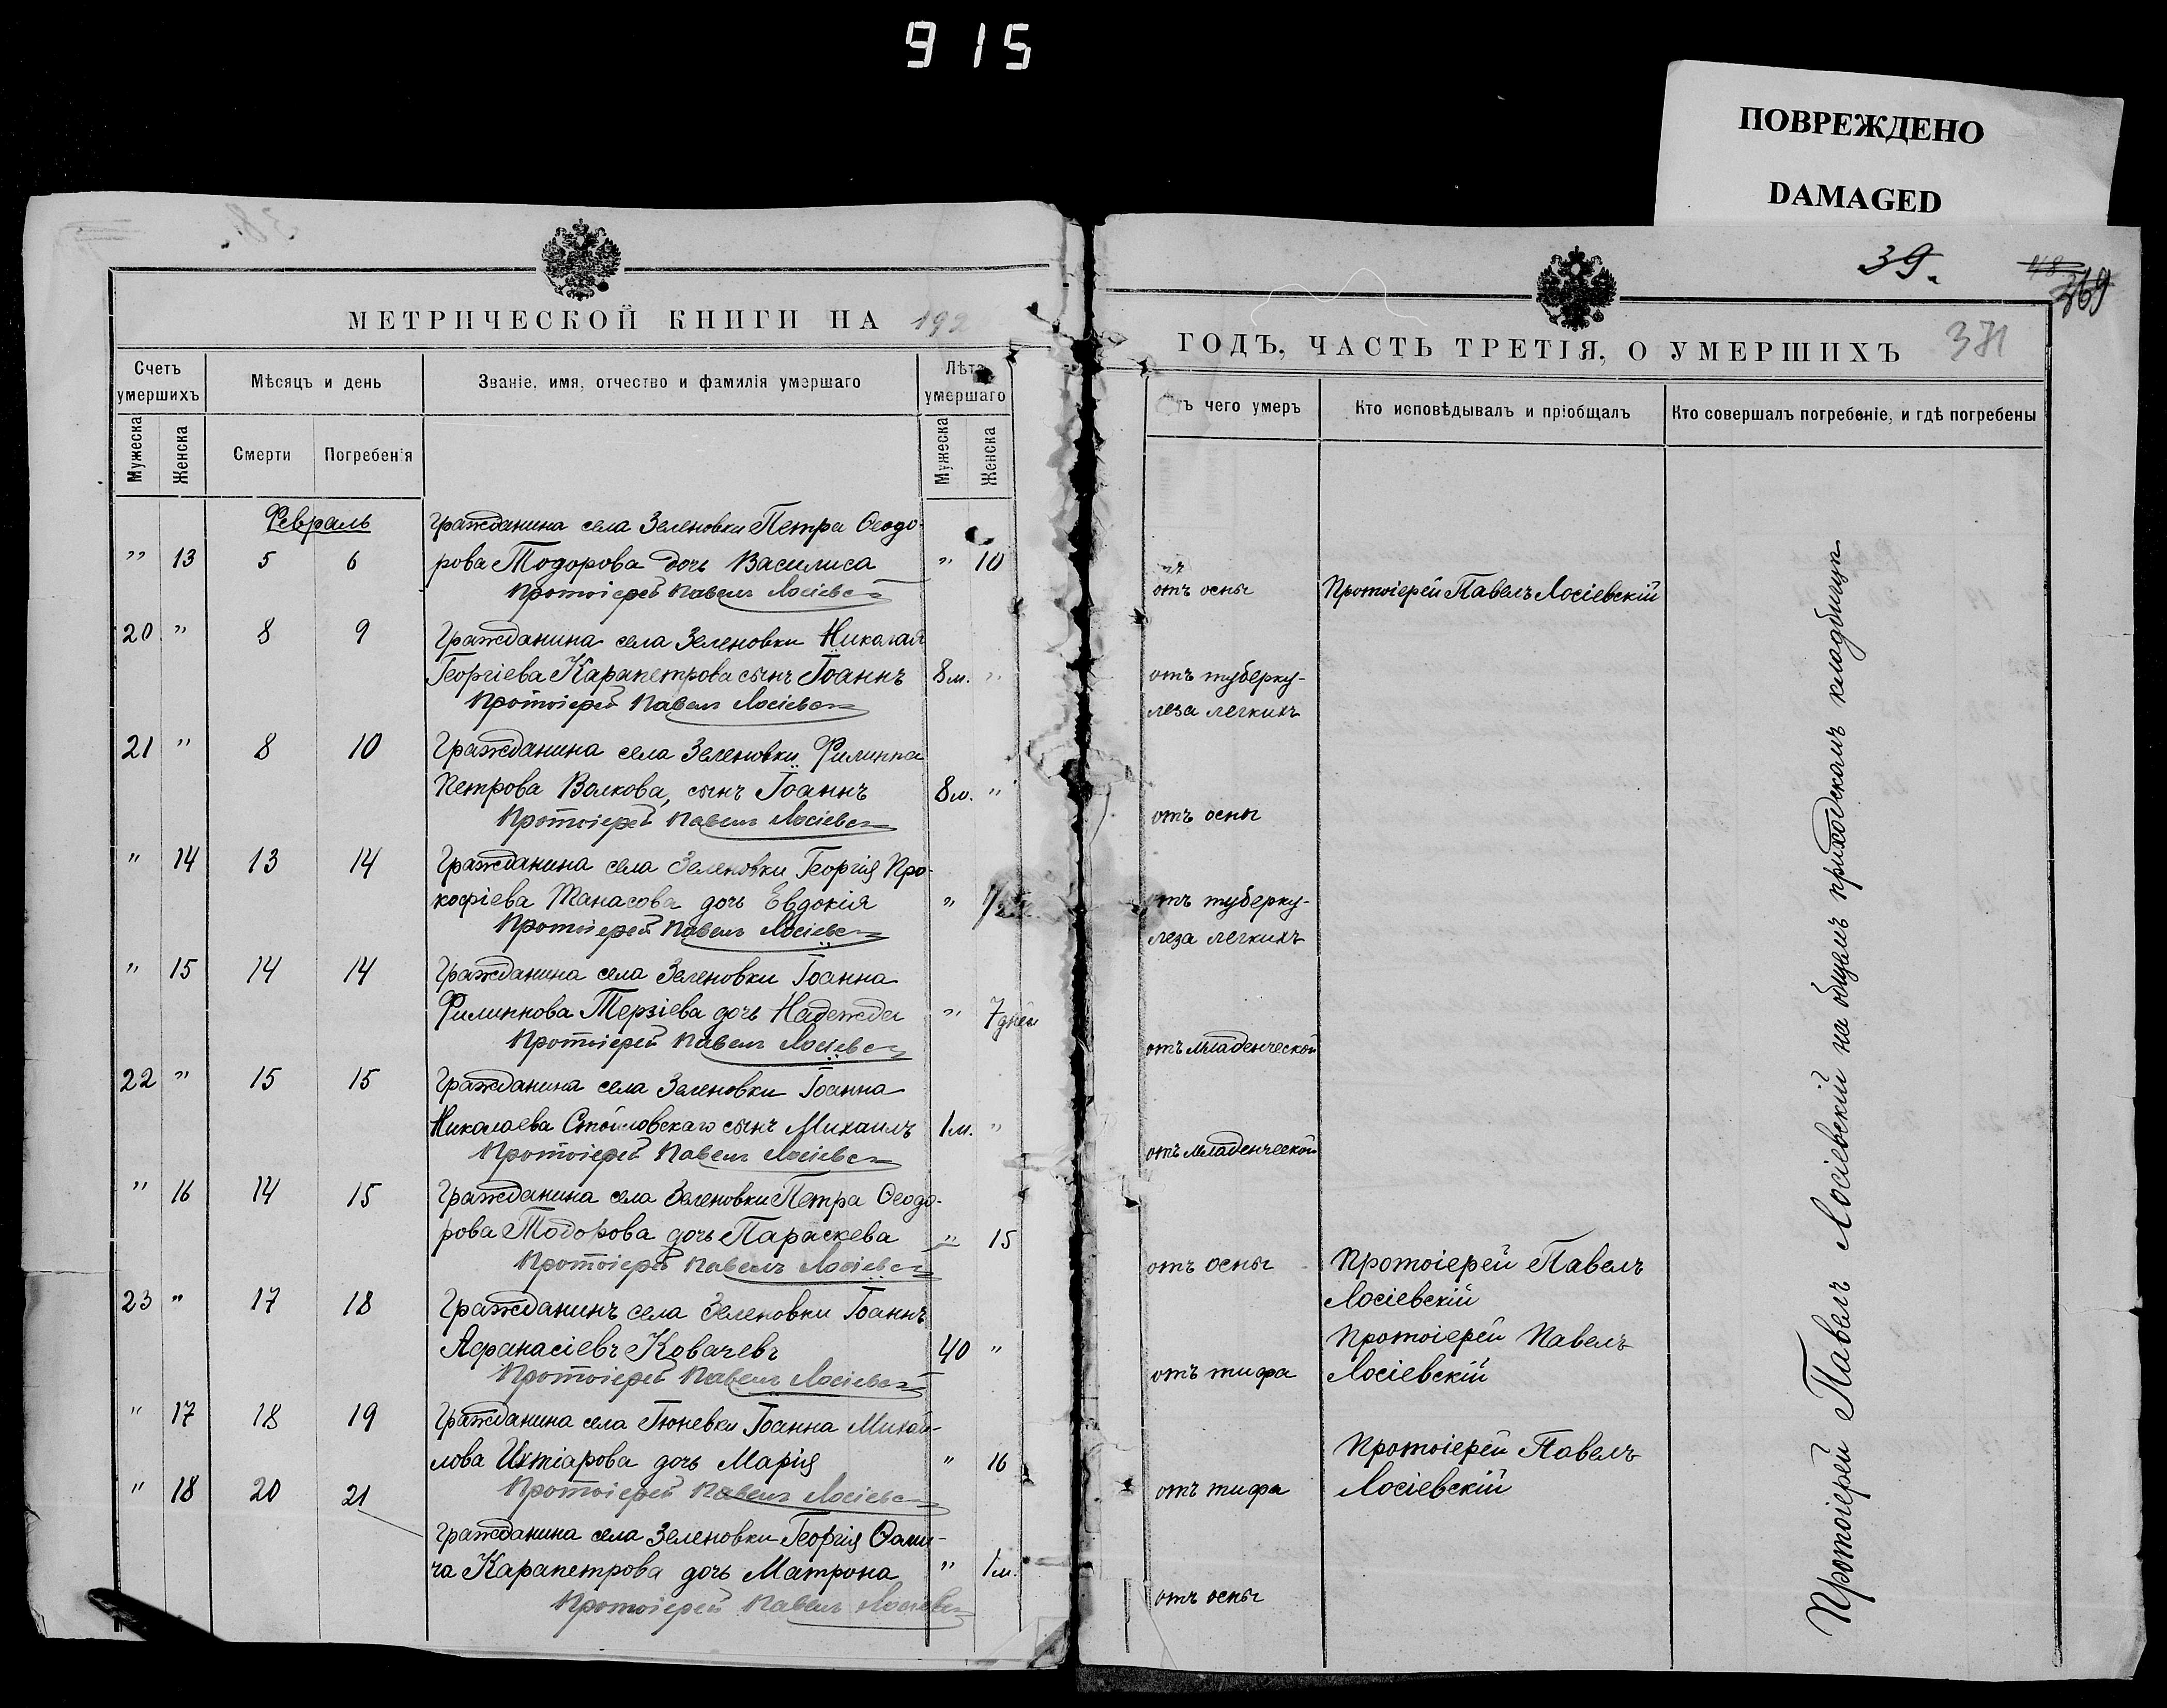 915
ПОВРЕЖДЕНО
DAMAGED
38.
МЕТРИЧЕСКОЙ КНИГИ НА 192
Счетъ умершихъ
Мѣсяцъ и день
Званіе, имя, отчество и фамилія умершаго
Лѣта умершаго
Мужеска
Женска
Смерти
Погребенія
Мужеска
Женска
Февраль
Гражданина села Зеленовки Петра Ѳеодо-
" 13 5 6 рова Тодорова дочь Василиса " 10
Протоіерей Павелъ Лосіевскій
20 " 8 9 Гражданина села Зеленовки Николая
Георгіева Карапетрова сынъ Іоаннъ 8 м. "
Протоіерей Павелъ Лосіевскій
21 " 8 10 Гражданина села Зеленовки Филиппа
Петрова Волкова, сынъ Іоаннъ 8 м. "
Протоіерей Павелъ Лосіевскій
" 14 13 14 Гражданина села Зеленовки Георгія Про-
кофіева Танасова дочь Евдокія " 1/2
Протоіерей Павелъ Лосіевскій
" 15 14 14 Гражданина села Зеленовки Іоанна
Филиппова Терзіева дочь Надежда " 7 дней
Протоіерей Павелъ Лосіевскій
22 " 15 15 Гражданина села Зеленовки Іоанна
Николаева Стоиловскаго сынъ Михаилъ 1 м. "
Протоіерей Павелъ Лосіевскій
" 16 14 15 Гражданина села Зеленовки Петра Ѳеодо-
рова Тодорова дочь Параскева " 15
Протоіерей Павелъ Лосіевскій
23 " 17 18 Гражданинъ села Зеленовки Іоаннъ
Аѳанасіевъ Ковачевъ 40 "
Протоіерей Павелъ Лосіевскій
" 17 18 19 Гражданина села Гюневки Іоанна Михай-
лова Ихтіарова дочь Марія " 16
" 18 20 21 Протоіерей Павелъ Лосіевскій
Гражданина села Зеленовки Георгія Ѳоми-
ча Карапетрова дочь Матрона " 1 м.
Протоіерей Павелъ Лосіевскій
39.
369
371
ГОДЪ, ЧАСТЬ ТРЕТІЯ, О УМЕРШИХЪ
ъ чего умеръ
Кто исповѣдывалъ и пріобщалъ
Кто совершалъ погребеніе, и гдѣ погребены
отъ оспы Протоіерей Павелъ Лосіевскій
отъ туберку-
леза легкихъ
отъ оспы
отъ туберку-
леза легкихъ
отъ младенческой
отъ младенческой
отъ оспы Протоіерей Павелъ
Лосіевскій
Протоіерей Павелъ
отъ тифа Лосіевскій
Протоіерей Павелъ
отъ тифа Лосіевскій
отъ оспы
Протоіерей Павелъ Лосіевскій на общемъ приходскомъ кладбищѣ